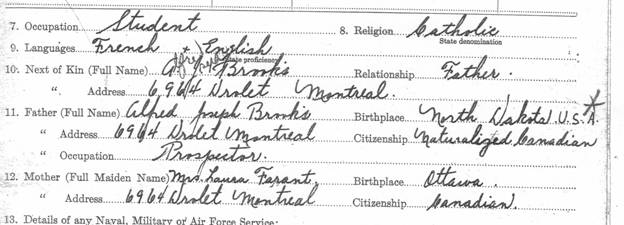 7. Occupation Student 8. Religion Catholic
State denomination
9. Languages French + English
State proficiency
10. Next of Kin (Full Name) Joseph Brooks Relationship Father.
". Address 6964 Drolet Montreal.
11. Father (Full Name) Alfred Joseph Brooks Birthplace North Dakota U.S.A. *
" Address 6964 Drolet Montreal Citizenship Naturalized Canadian
" Occupation Prospector.
12. Mother (Full Maiden Name) Mrs. Laura Farant. Birthplace Ottawa.
" Address 6964 Drolet Montreal Citizenship Canadian.
13. Details of any Naval, Military or Air Force Service: